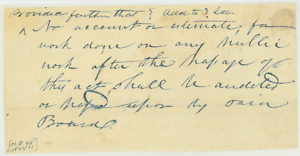 Provided further that ? Add to 3 Sec
^ No account or estimate, for
work done on any public
work after the passage of
this act shall be audited
or upon by said
Board